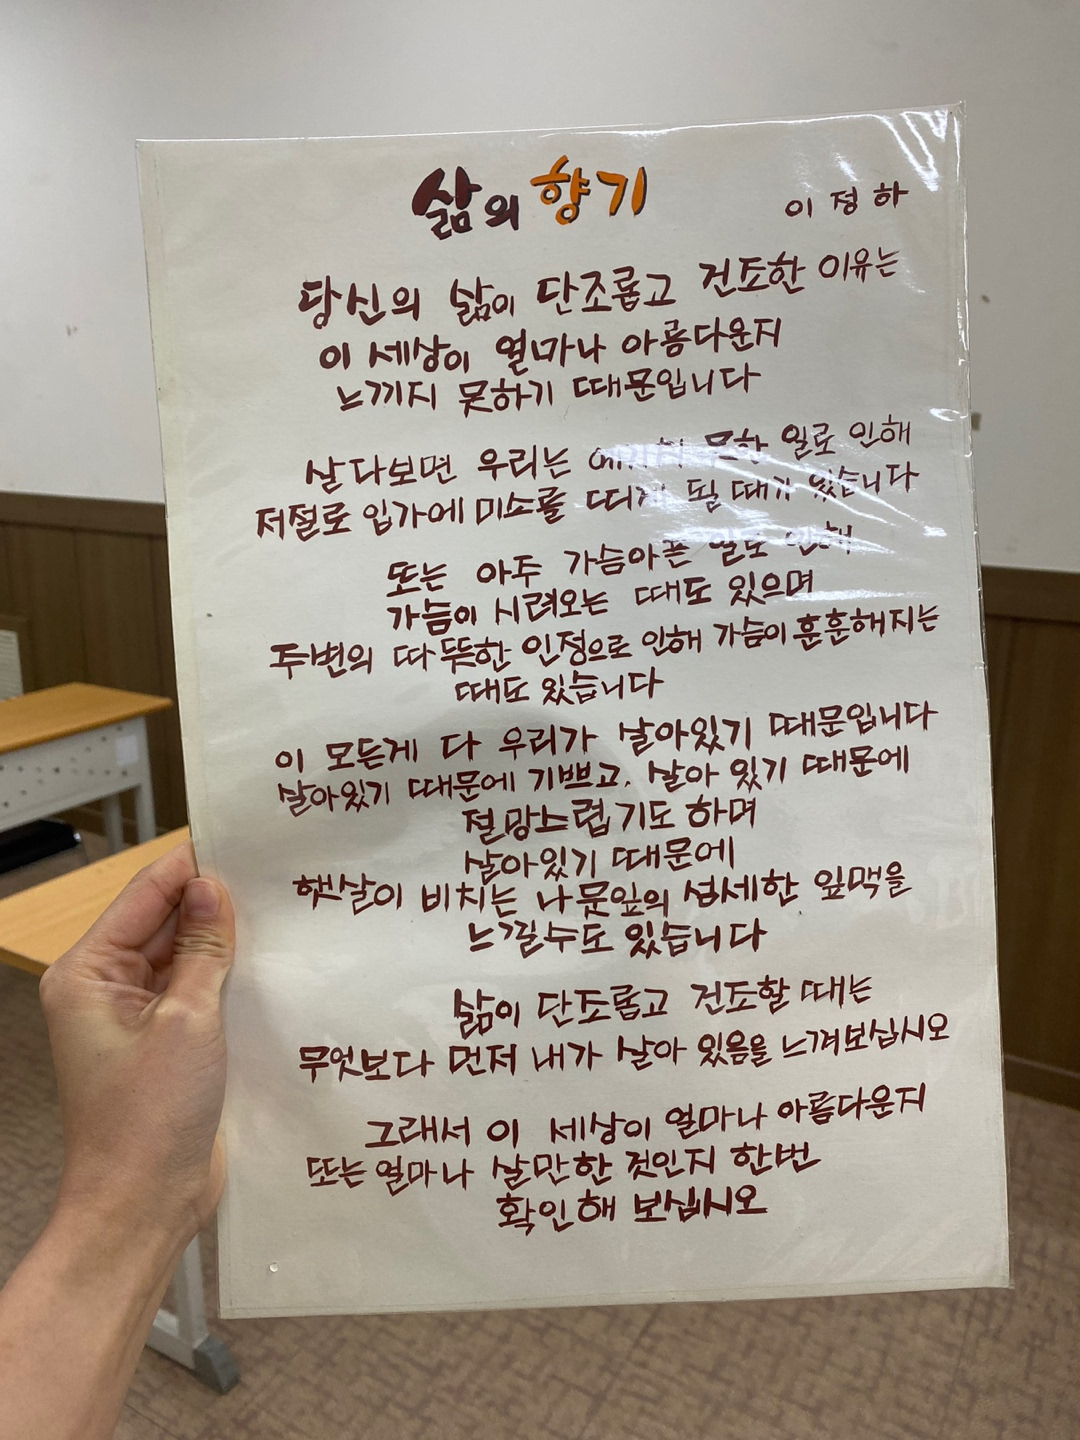 삶의 향기
이정하
당신의 삶이 단조롭고 건조한 이유는
이 세상이 얼마나 아름다운지
느끼지 못하기 때문입니다
살다보면 우리는 예기치 못한 일로 인해
저절로 입가에 미소를 띠게 될 때가 있습니다
또는 아주 가슴아픈 일로 인해
가슴이 시려오는 때도 있으며
주변의 따뜻한 인정으로 인해 가슴이 훈훈해지는
때도 있습니다
이 모든게 다 우리가 살아있기 때문입니다
살아있기 때문에 기쁘고, 살아 있기 때문에
절망스럽기도 하며
살아있기 때문에
햇살이 비치는 나뭇잎의 섬세한 잎맥을
느낄수도 있습니다
삶이 단조롭고 건조할 때는
무엇보다 먼저 내가 살아 있음을 느껴보십시오
그래서 이 세상이 얼마나 아름다운지
또는 얼마나 살만한 것인지 한번
확인해 보십시오